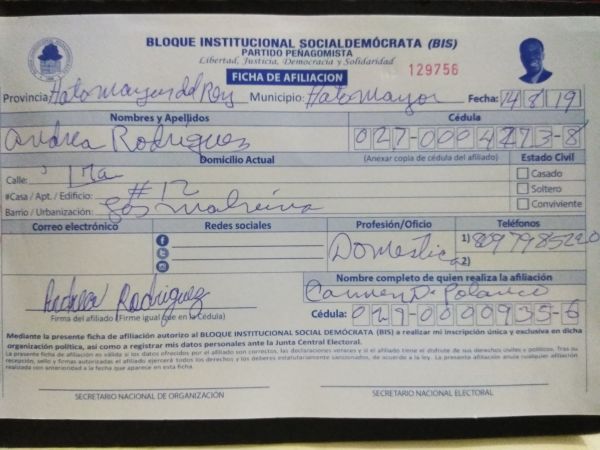 BLOQUE INSTITUCIONAL SOCIALDEMÓCRATA (BIS)
PARTIDO PEÑAGOMISTA
Libertad, Justicia, Democracia y Solidaridad
FICHA DE AFILIACION
129756
Provincia: Hato Mayor del Rey Municipio: Hato Mayor Fecha: 14/8/19
Nombres y Apellidos Cédula
Andrea Rodriguez 027-0004273-8
Domicilio Actual (Anexar copia de cédula del afiliado) Estado Civil
Calle: 1ra Casado
#Casa / Apt. / Edificio: #12 Soltero
Barrio / Urbanización: Conviviente
Correo electrónico Redes sociales Profesión/Oficio Teléfonos
Domestica 1) 8097985220
2)
Andrea Rodriguez Nombre completo de quien realiza la afiliación
Carmen D. Polanco
Firma del afiliado (Firme igual que en la Cédula) Cédula: 027-0000935-6
Mediante la presente ficha de afiliación autorizo al BLOQUE INSTITUCIONAL SOCIAL DEMÓCRATA (BIS) a realizar mi inscripción única y exclusiva en dicha
organización política, así como a registrar mis datos personales ante la Junta Central Electoral.
La presente ficha de afiliación es válida si los datos ofrecidos por el afiliado son correctos, las declaraciones veraces y si el afiliado tiene el disfrute de sus derechos civiles y políticos. Tras su
recepción, sello y firmas autorizadas el afiliado ejercerá todos los derechos y los deberes estatutariamente sancionados, de acuerdo a la ley. La presente afiliación anula cualquier afiliación
realizada con anterioridad a la fecha que aparece en esta ficha.
SECRETARIO NACIONAL DE ORGANIZACIÓN SECRETARIO NACIONAL ELECTORAL